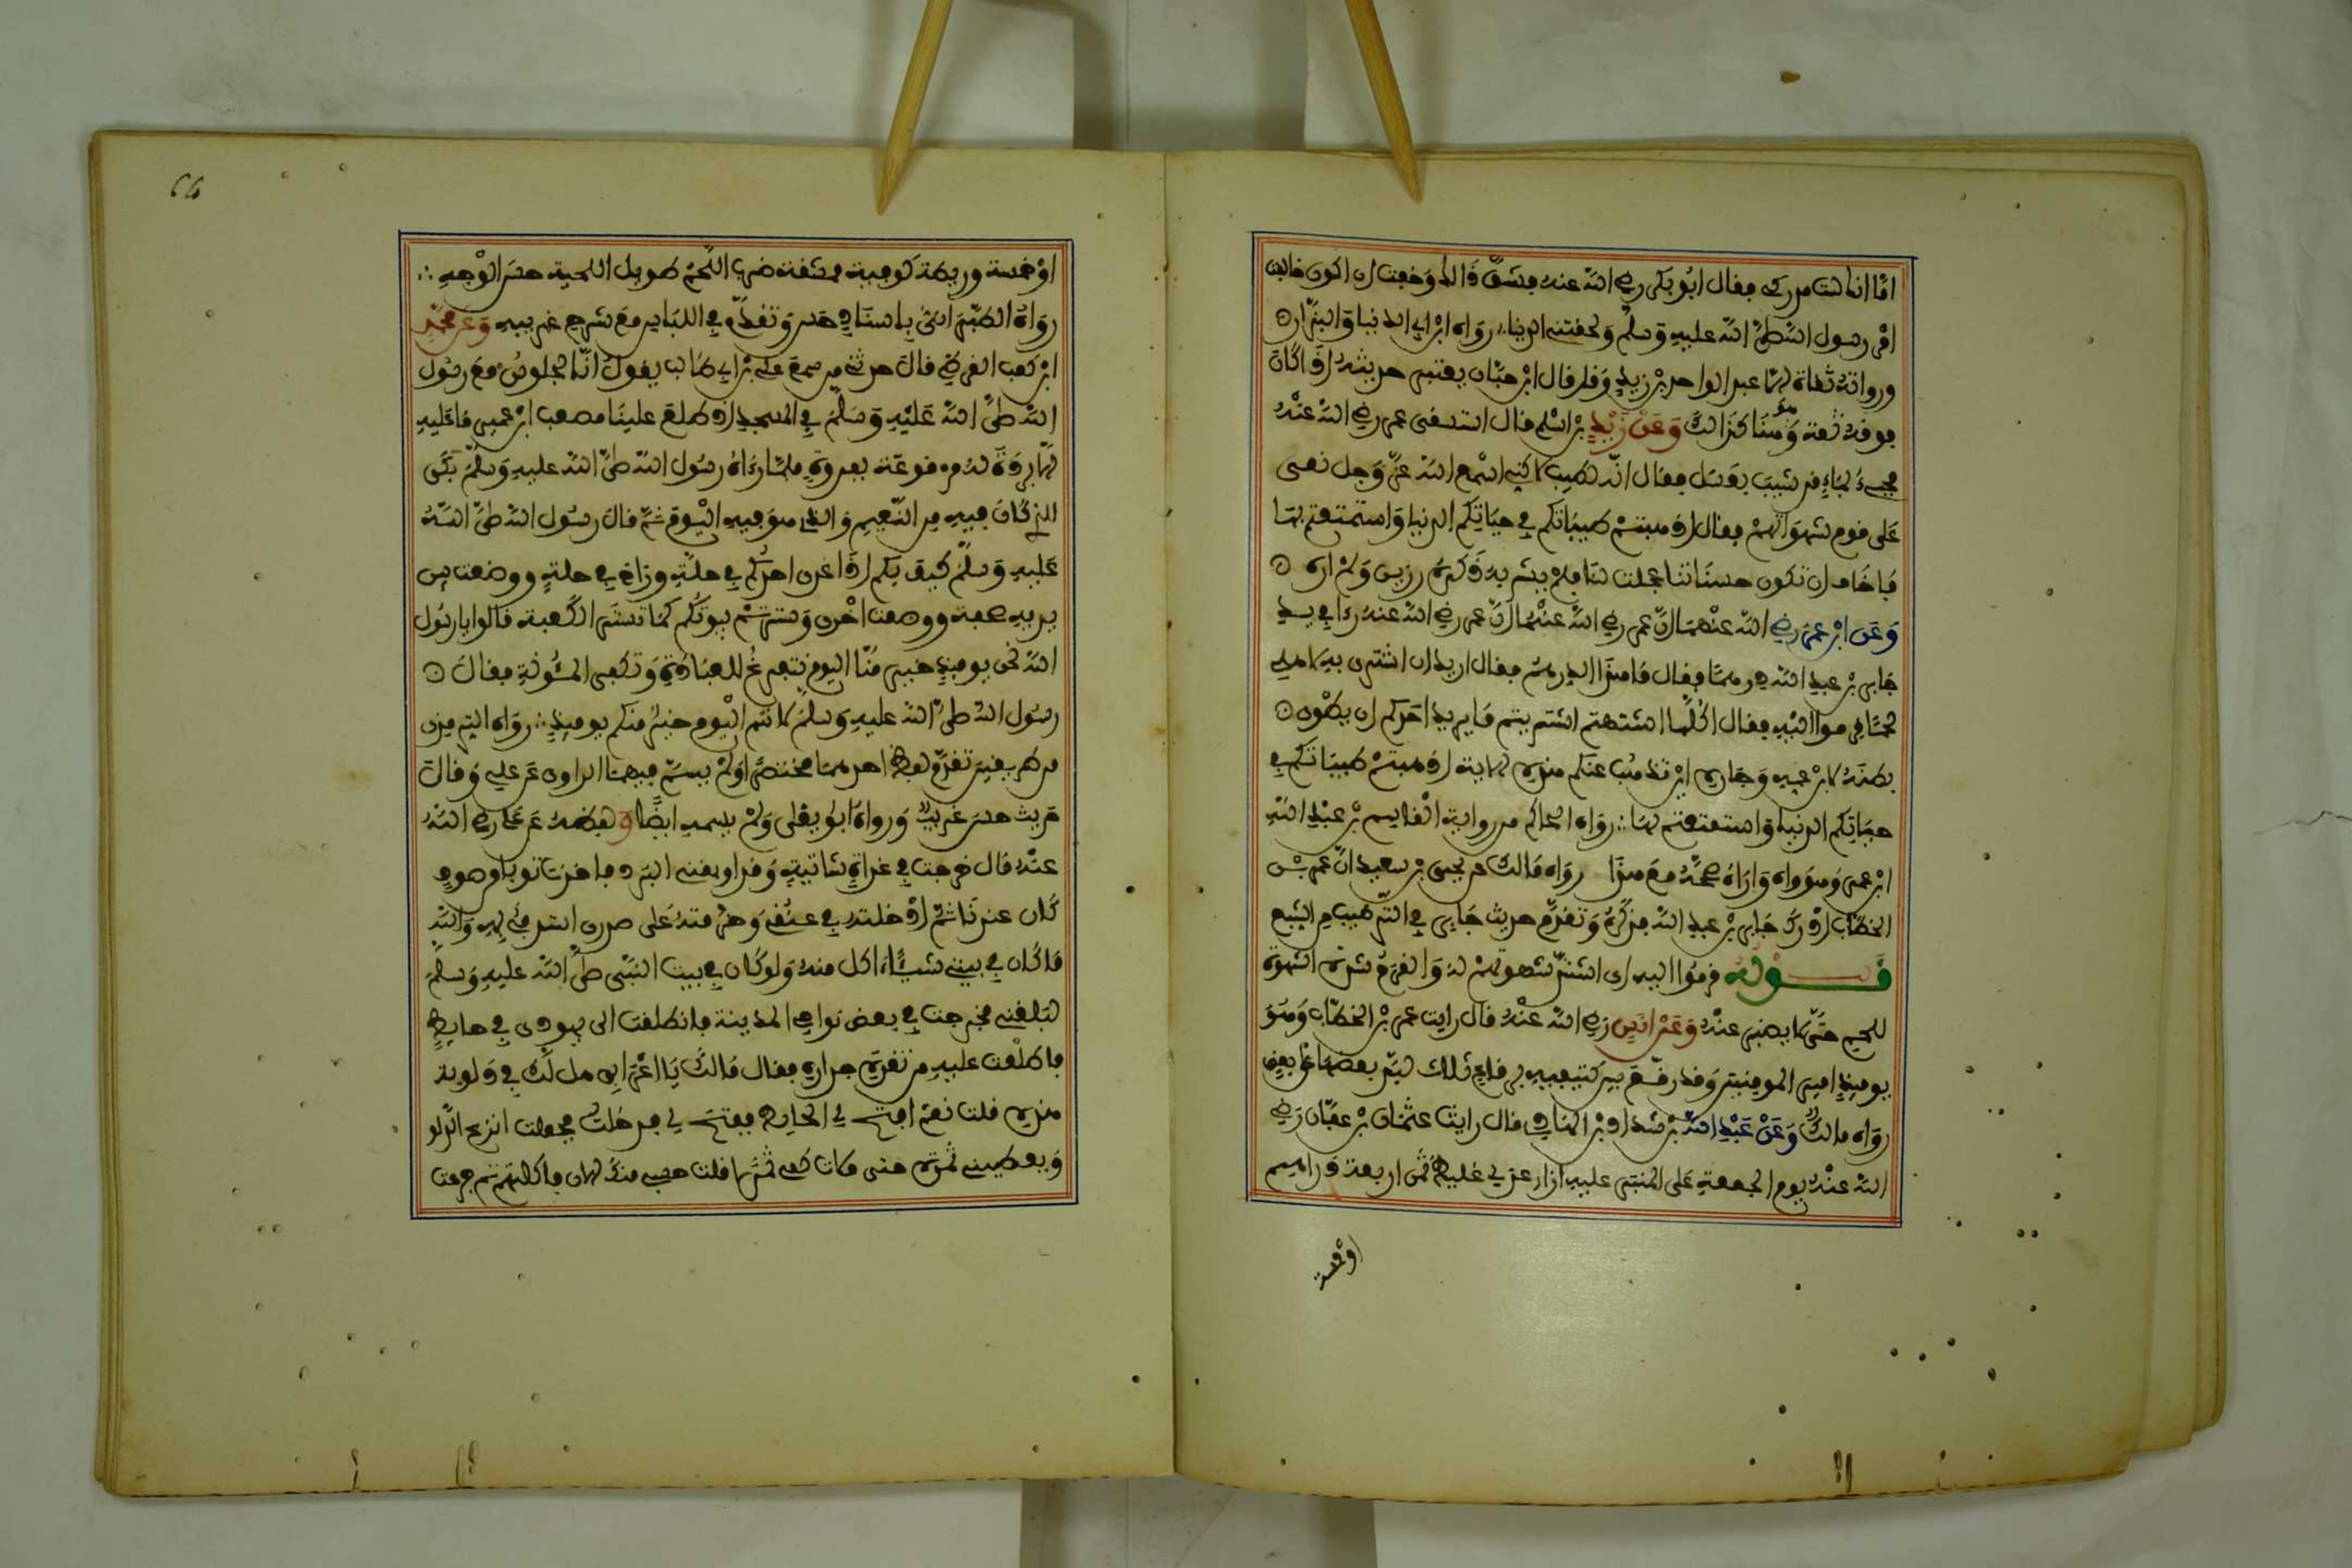 اما انها لن تدركك فقال ابو بكر رضي الله عنه فشق ذالك وخفت ان اكون خالفت
امر رسول الله صلى الله عليه وسلم ولحقتني الدنيا رواه ابن ابي الدنيا والبزار
ورواته ثقات الا عبد الواحد بن زيد وقد قال ابن حبان يعتبر حديثه اذا كان
فوقه ثقة وهنا كذالك وعن زيد بن اسلم قال استسقى عمر رضي الله عنه
فجيء بماء قد شيب بعسل فقال انه لطيب لاكني اسمع الله عز وجل نعى
على قوم شهواتهم فقال اذهبتم طيباتكم في حياتكم الدنيا واستمتعتم بها
فاخاف ان تكون حسناتنا عجلت لنا فلم يشربه ذكره رزين ولم اره
وعن ابن عمر رضي الله عنهما ان عمر رضي الله عنهما ان عمر رضي الله عنه رءا في يد
جابر بن عبد الله درهما فقال ما هذا الدرهم فقال اريد ان اشتري به لاهلي
لحما قرموا اليه فقال اكلما اشتهيتم اشتريتم ما يريد احدكم ان يطوي
بطنه لابن عمه وجاره اين تذهب عنكم هذه الاية اذهبتم طيباتكم في
حياتكم الدنيا واستمتعتم بها رواه الحاكم من رواية القاسم بن عبد الله
ابن عمر وهو واه واراه صححه مع هذا رواه مالك عن يحيى بن سعيد ان عمر بن
الخطاب ادرك جابر بن عبد الله فذكره وتقدم حديث جابر في الترهيب من الشبع
قوله قرموا اليه اى اشتدت شهوتهم له والقرم شدة الشهوة
للحم حتى لا يصبر عنه وعن انس رضي الله عنه قال رايت عمر بن الخطاب وهو
يوميذ امير المومنين وقد رقع بين كتفيه برقاع ثلاث لبد بعضها على بعض
رواه مالك وعن عبد الله بن شداد بن الهاد قال رايت عثمان بن عفان رضي
الله عنه يوم الجمعة على المنبر عليه ازار عدني غليظ ثمن اربعة دراهيم
او خمسة
او خمسة وريطة كوفية ممشقة ضرب اللحم طويل اللحية حسن الوجه
رواه الطبراني باسناد حسن وتقدم في اللباس مع شرح غريبه وعن محمد
ابن كعب القرظي قال حدثني من سمع علي بن ابي طالب يقول انا لجلوس مع رسول
الله صلى الله عليه وسلم في المسجد اذ طلع علينا مصعب ابن عمير ما عليه
الا بردة له مرقوعة بفروة فلما رءاه رسول الله صلى الله عليه وسلم بكى
للذي كان فيه من النعيم والذي هو فيه اليوم ثم قال رسول الله صلى الله
عليه وسلم كيف بكم اذا غدى احدكم في حلة وراح في حلة ووضعت بين
يديه صحفة ووضعت اخرى وسترتم بيوتكم كما تستر الكعبة قالوا يا رسول
الله نحن يوميذ خير منا اليوم نتفرغ للعبادة ونكفى المئونة فقال
رسول الله صلى الله عليه وسلم لانتم اليوم خير منكم يوميذ رواه الترمذي
من طريقين تقدم لفظ احدهما مختصرا ولم يسم فيهما الراوي عن علي وقال
حديث حسن غريب ورواه ابو يعلى ولم يسمه ايضا ولفظه عن علي رضي الله
عنه قال خرجت في غداة شاتية وقد اوبقني البرد فاخذت ثوبا من صوف
كان عندنا ثم ادخلته في عنقي وحزمته على صدري استدفي به والله
ما كان في بيتي شيء اكل منه ولو كان في بيت النبي صلى الله عليه وسلم
لبلغني فخرجت في بعض نواحي المدينة فانطلقت الى يهودي في حايط
فاطلعت عليه من ثغرة جداره فقال مالك يا اعرابي هل لك في دلو بتـ
ـمرة قلت نعم افتح لي الحايط ففتح لي فدخلت فجعلت انزع الدلو
ويعطيني ثمرة حتى ملات كفي ثمرا فقلت حسبي منك الان فاكلتهم ثم جرعت